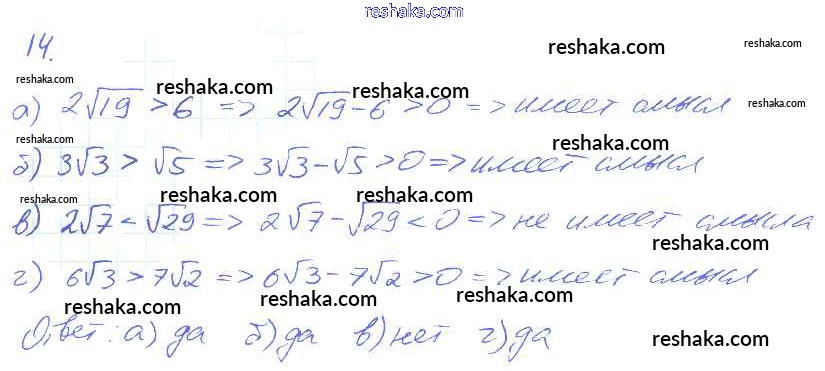 reshaka.com
14.
reshaka.com reshaka.com
reshaka.com reshaka.com reshaka.com
а) 2√19 > 6 => 2√19 - 6 > 0 => имеет смысл reshaka.com
reshaka.com reshaka.com
б) 3√3 > √5 => 3√3 - √5 > 0 => имеет смысл
reshaka.com reshaka.com reshaka.com
в) 2√7 < √29 => 2√7 - √29 < 0 => не имеет смысла
reshaka.com
г) 6√3 > 7√2 => 6√3 - 7√2 > 0 => имеет смысл
reshaka.com reshaka.com reshaka.com
Ответ: а) да б) да в) нет г) да
reshaka.com reshaka.com